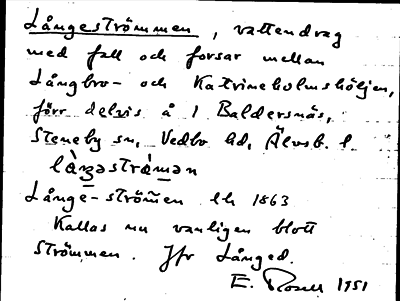 Långeströmmen, vattendrag
med fall och forsar mellan
Långbro- och Katrineholmshöljen,
förr delvis å 1 Baldersnäs,
Steneby sn, Vedbo hd, Älvsb. l.
Långe-strömen lh 1863
Kallas nu vanligen blott
Strömmen. Jfr Långed.
E. 1951